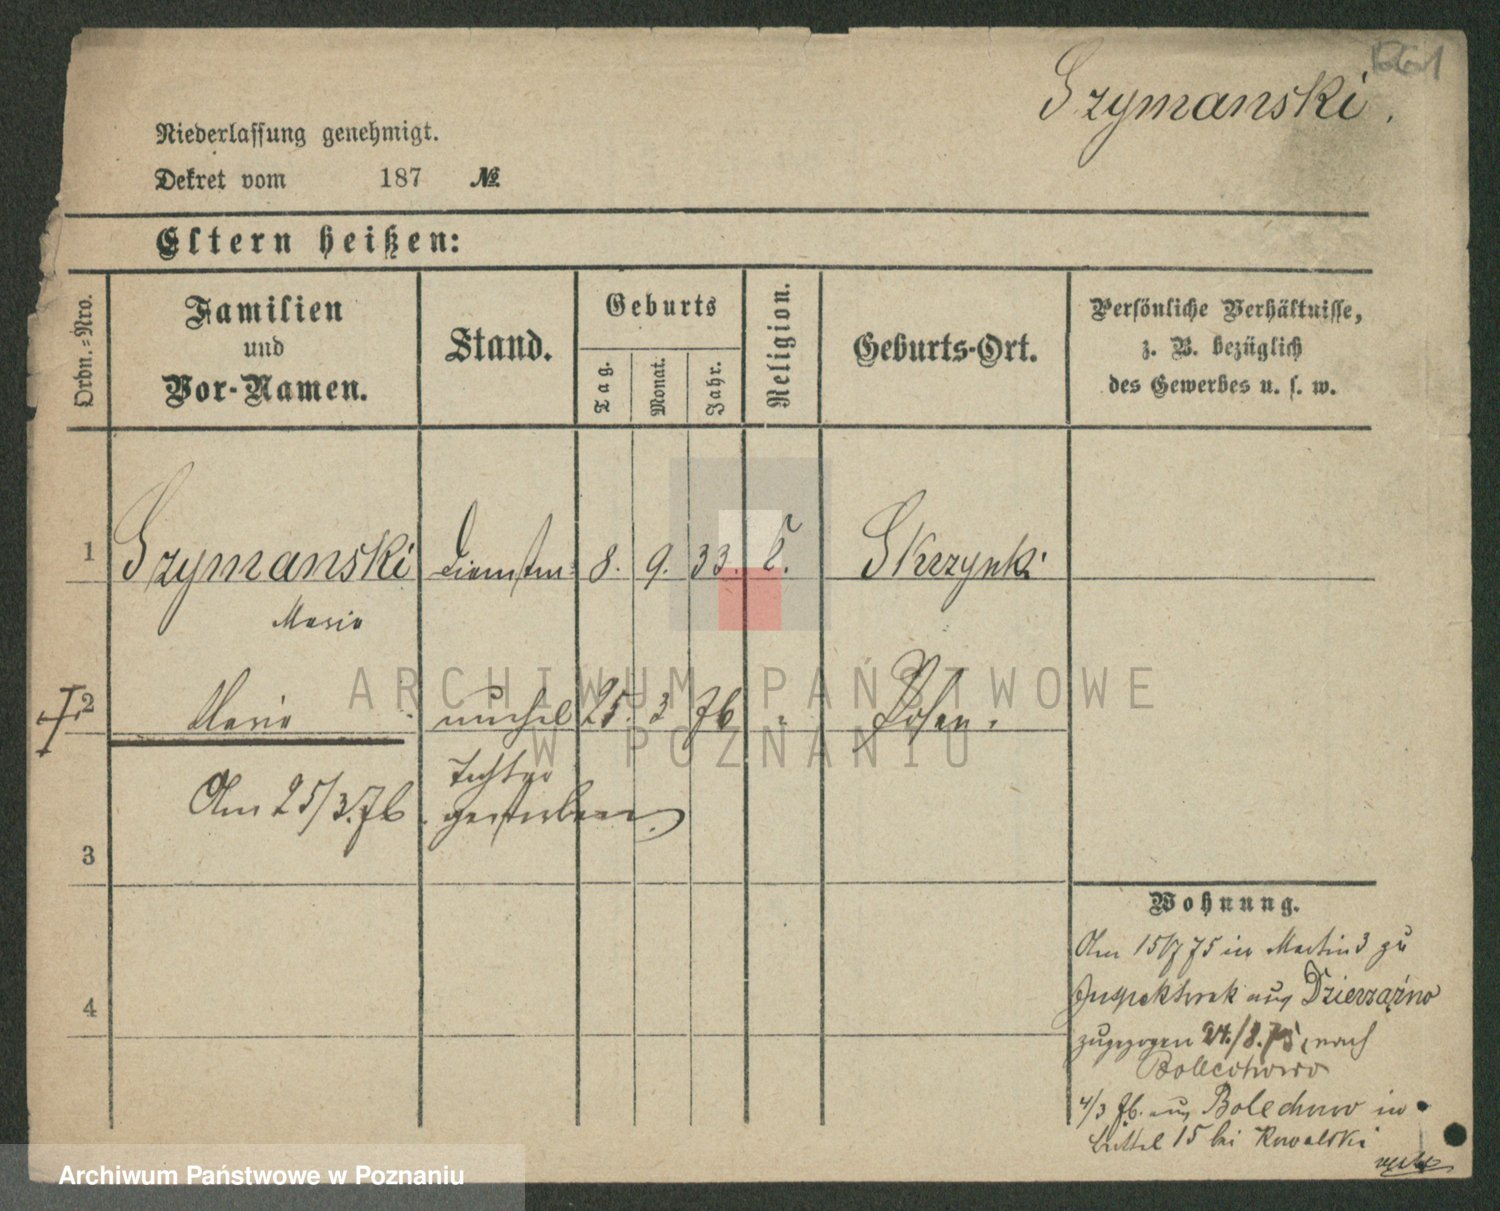 1264
Szymanski.
Niederlassung genehmigt.
Dekret vom 187 №
Eltern heißen:
Ordn.=Nro.
Familien
und
Vor-Namen.
Stand.
Geburts
Tag.
Monat.
Jahr.
Religion.
Geburts-Ort.
Persönliche Verhältnisse,
z. B. bezüglich
des Gewerbes u. s. w.
1 Szymanski 8. 9. 33. Skrzynki
Maria
2 Maria unehel 25. 3 76 Posen.
Tochter
Am 25/3.76. gestorben.
3
4
Wohnung.
Am 15/7 75 in Martin 3 zu
aus Dzierzążno
zugezogen 24./8.75, nach
Bolechowo
4/3 76. aus Bolechowo in
Büttel 15 bei Kowalski
ARCHIWUM PAŃSTWOWE
W POZNANIU
Archiwum Państwowe w Poznaniu